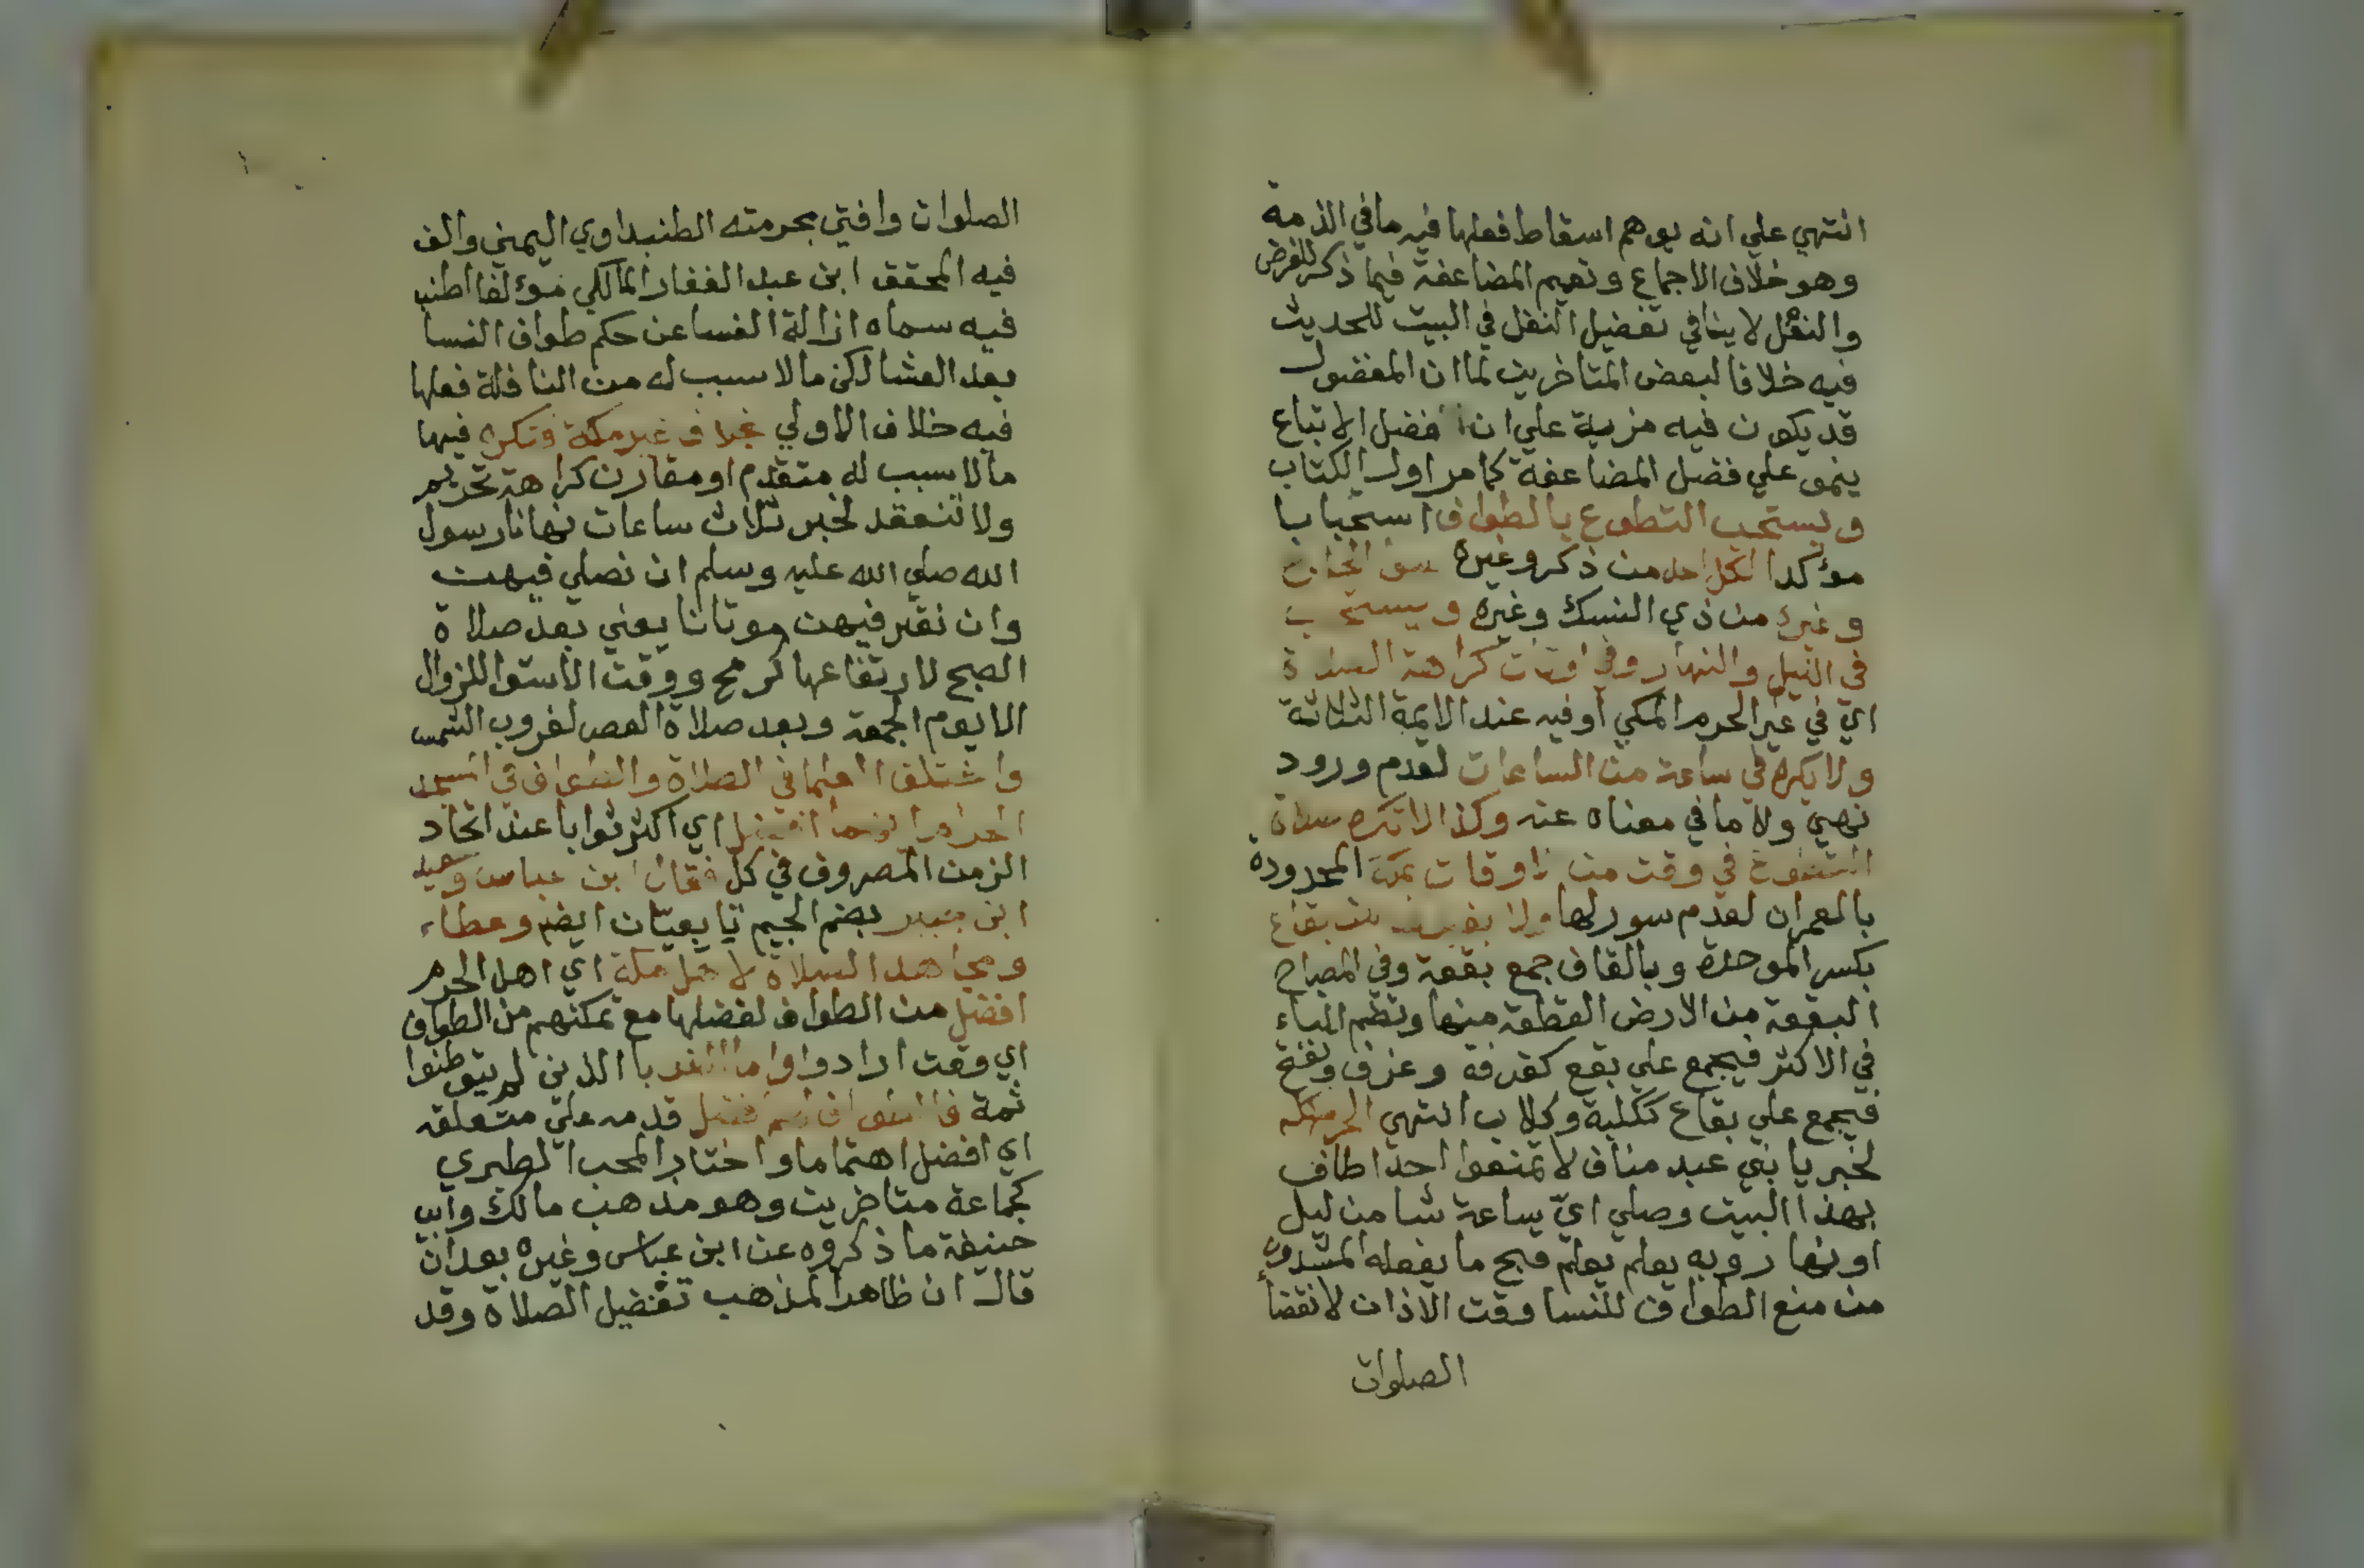 انتهي علي انه يوهم اسقاط فعلها فيه ما في الذمة
وهو خلاف الاجماع وتعيم المضاعفة فيما ذكر للفرض
والنفل لا ينافي تفضيل النفل في البيت للحديث
فيه خلافا لبعض المتاخرين لما ان المفضول
قد يكون فيه مزية علي ان افضل الاتباع
ينمو علي فضل المضاعفة كما مر اول الكتاب
ويستحب التطوع بالطواف استحبابا
مؤكدا لكل احد من ذكر وغيره سوا الحاج
وغيره من ذي النسك وغيره ويستحب
في الليل والنهار وفي اوقات كراهة الصلاة
اي في غير الحرم المكي او فيه عند الايمة الثلاثة
ولا يكره في ساعة من الساعات لعدم ورود
نهي ولا ما في معناه عنه وكذا لا تكره صلاة
التطوع في وقت من الاوقات بمكة المحدودة
بالعمران لعدم سورلها ولا بغيرها من بقاع
بكسر الموحدة وبالقاف جمع بقعة وفي المصباح
البقعة من الارض القطعة منها وتضم الباء
في الاكثر فيجمع علي بقع كغرفة وغرف وتفتح
فيجمع علي بقاع ككلبة وكلاب انتهي الحرم كله
لخبر يا بني عبد مناف لا تمنعوا احدا طاف
بهذا البيت وصلي اي ساعة شا من ليل
او نهار وبه يعلم يعلم قبح ما يفعله المشددون
من منع الطواف للنسا وقت الاذان لانقضا
الصلوات
الصلوات وافتي بحرمته الطنبداوي اليمني والف
فيه المحقق ابن عبد الغفار المالكي مؤلفا اطنب
فيه سماه ازالة الغسا عن حكم طواف النسا
بعد العشا لكن ما لا سبب له من النافلة فعلها
فيه خلاف الاولي بخلاف غير مكة وتكره فيها
ما لا سبب له متقدم او مقارن كراهة تحريم
ولا تنعقد لخبر ثلاث ساعات نهانا رسول
الله صلي الله عليه وسلم ان نصلي فيهن
وان نقبر فيهن موتانا يعني بعد صلاة
الصبح لارتفاعها كرمح ووقت الاستوا للزوال
الا يوم الجمعة وبعد صلاة العصر لغروب الشمس
واختلف العلما في الصلاة والطواف في المسجد
الحرام ايهما افضل اي اكثر ثوابا عند اتحاد
الزمن المصروف في كل فقال ابن عباس وسعيد
ابن جبير بضم الجيم تابعيان ايضم وعطاء
ومجاهد الصلاة لاهل مكة اي اهل الحرم
افضل من الطواف لفضلها مع تمكنهم من الطواف
اي وقت ارادوا واما الغربا الذين لم يتوطنوا
ثمة فالطواف لهم افضل قدمه علي متعلقه
اي افضل اهتماما واختار المحب الطبري
كجماعة متاخرين وهو مذهب مالك وابي
حنيفة ما ذكروه عن ابن عباس وغيره بعد ان
قال ان ظاهر المذهب تفضيل الصلاة وقد